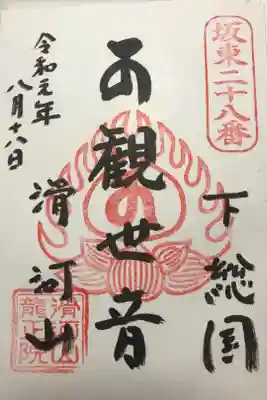 坂東二十八番
下総国
観世音
滑河山
令和元年
八月十八日
滑河山
龍正院